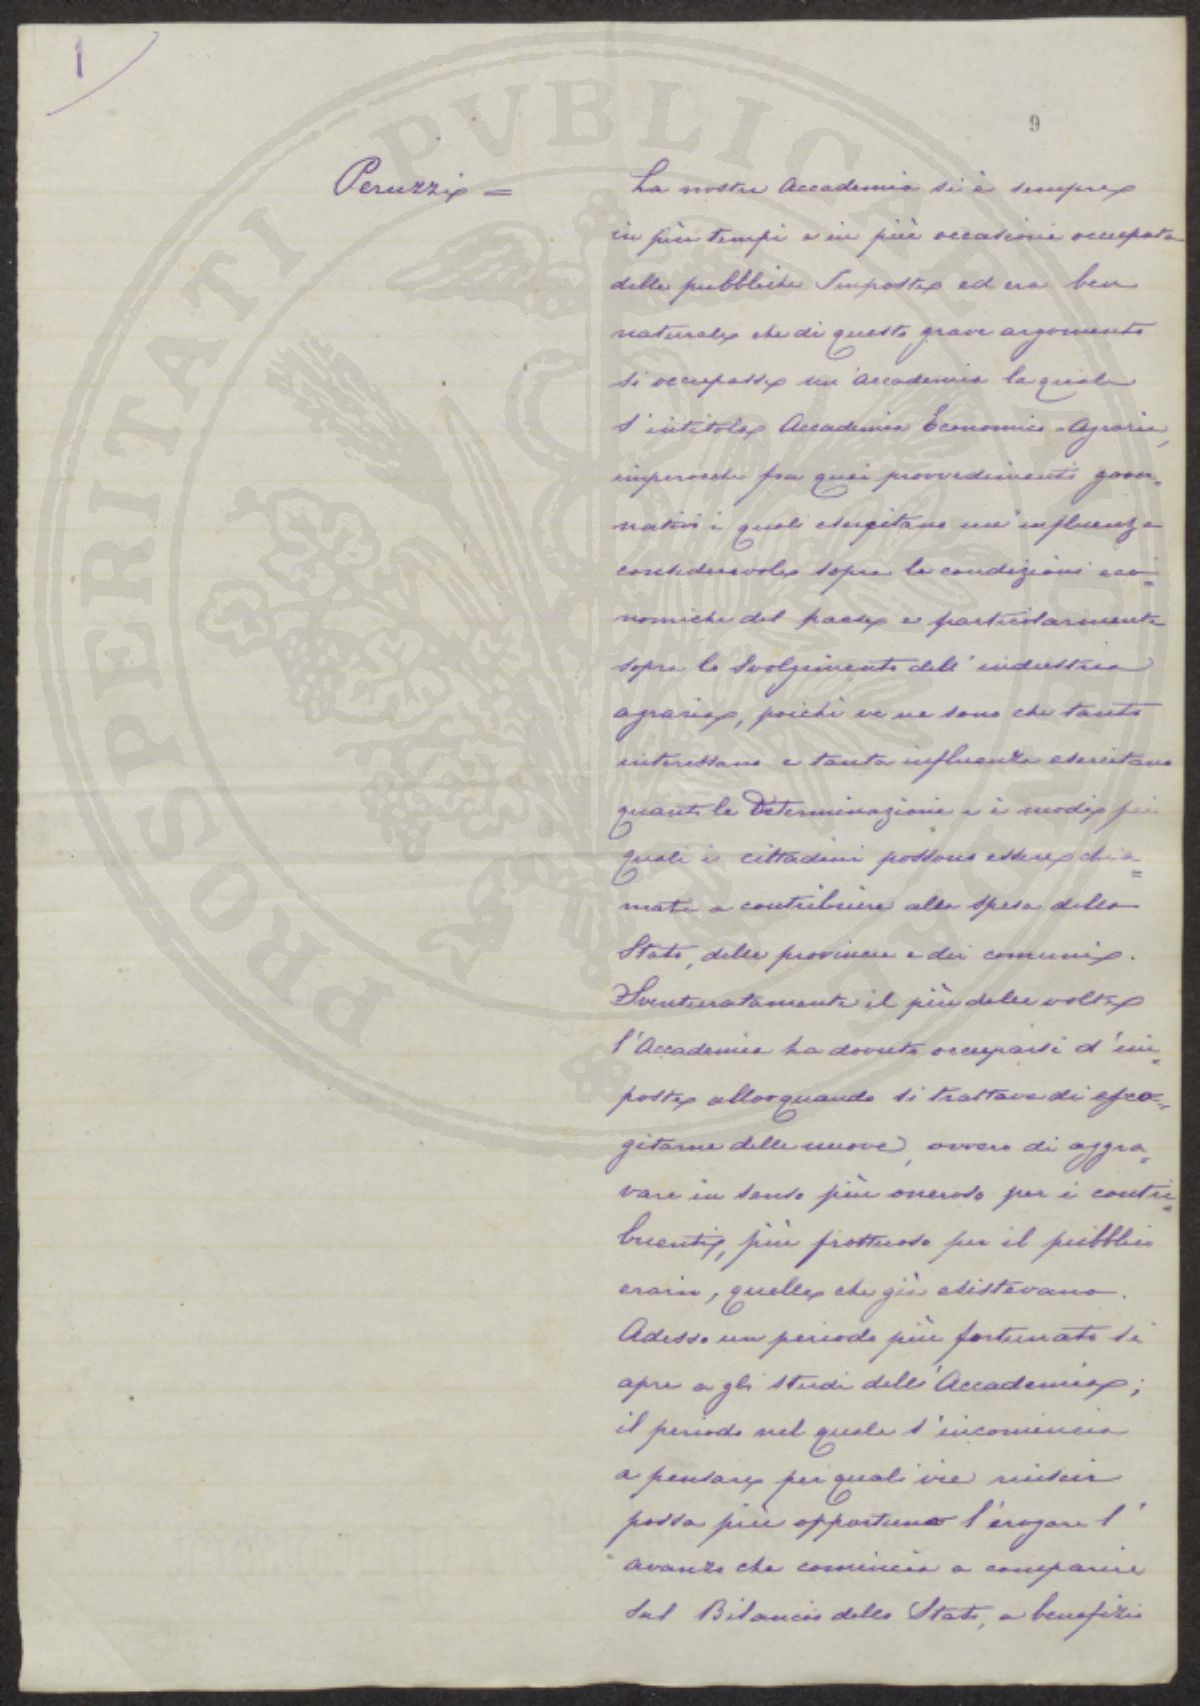 1
9
Peruzzi =
La nostra Accademia si è sempre
in più tempi e in più occasioni occupata
delle pubbliche Imposte ed era ben
naturale che di questo grave argomento
si occupasse un'Accademia la quale
s'intitola Accademia Economico-Agraria,
imperocchè fra quei provvedimenti gover-
nativi i quali esercitano un'influenza
considerevole sopra le condizioni eco-
nomiche del paese e particolarmente
sopra lo svolgimento dell'industria
agraria, poichè ve ne sono che tanto
interessano e tanta influenza esercitano
quanto la Determinazione e i modi pei
quali i cittadini possono essere chia=
mati a contribuire alle spese dello
Stato, delle provincie e dei comuni.
Sventuratamente il più delle volte
l'Accademia ha dovuto occuparsi d'im=
poste allorquando si trattava di esco=
gitarne delle nuove, ovvero di aggra=
vare in senso più oneroso per i contri=
buenti, più fruttuoso per il pubblico
erario, quelle che già esistevano.
Adesso un periodo più fortunato si
apre a gli studi dell'Accademia;
il periodo nel quale s'incomincia
a pensare per quali vie riuscir
possa più opportuno l'erogare l'
avanzo che comincia a comparire
sul Bilancio dello Stato, a benefizio
PROSPERITATI PVBLICAE